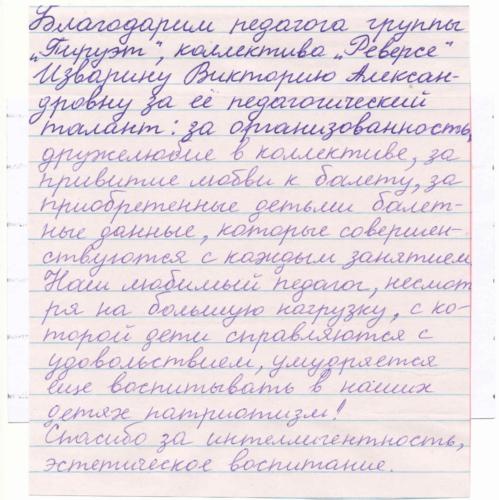 Благодарим педагога группы
„Пируэт", коллектива „Реверсе"
Изварину Викторию Алексан-
дровну за её педагогический
талант: за организованность,
дружелюбие в коллективе, за
привитие любви к балету, за
приобретенные детьми балет-
ные данные, которые совершен-
ствуются с каждым занятием.
Наш любимый педагог, несмот
ря на большую нагрузку, с ко-
торой дети справляются с
удовольствием, умудряется
еще воспитывать в наших
детях патриотизм!
Спасибо за интеллигентность,
эстетическое воспитание.